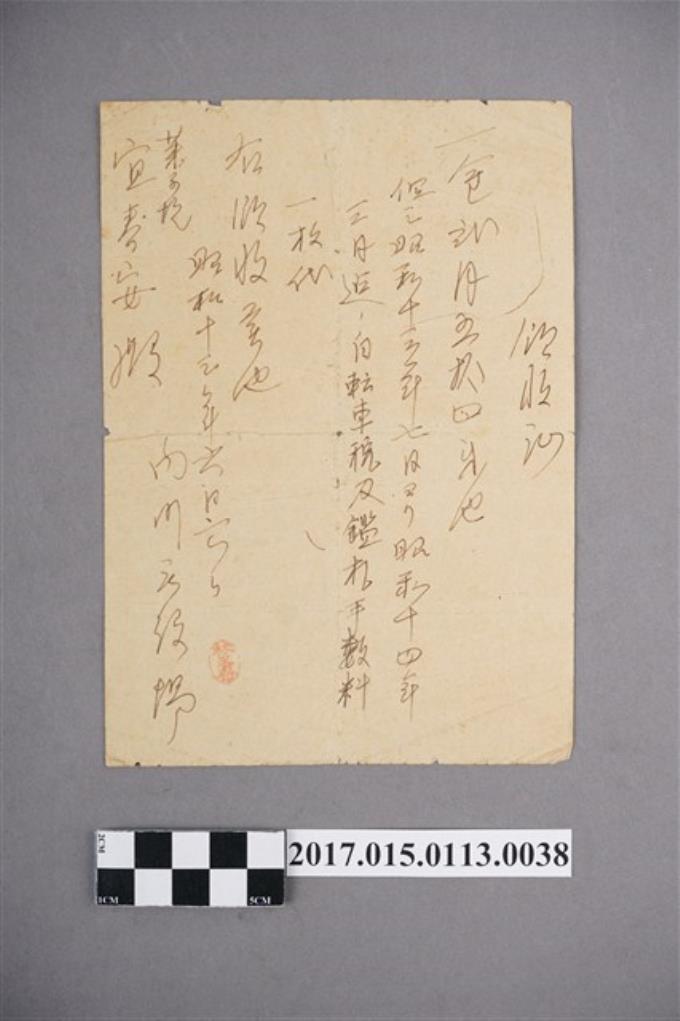 領收証
一金 貳円五拾四錢也
但シ昭和十三年七月ヨリ昭和十四年
三月迄ノ自転車税及鑑札手数料
一枚代
右領收候也
昭和十三年六月六日
内門区役場
菓子挽
宜寿安殿
2017.015.0113.0038
2CM
1CM
5CM